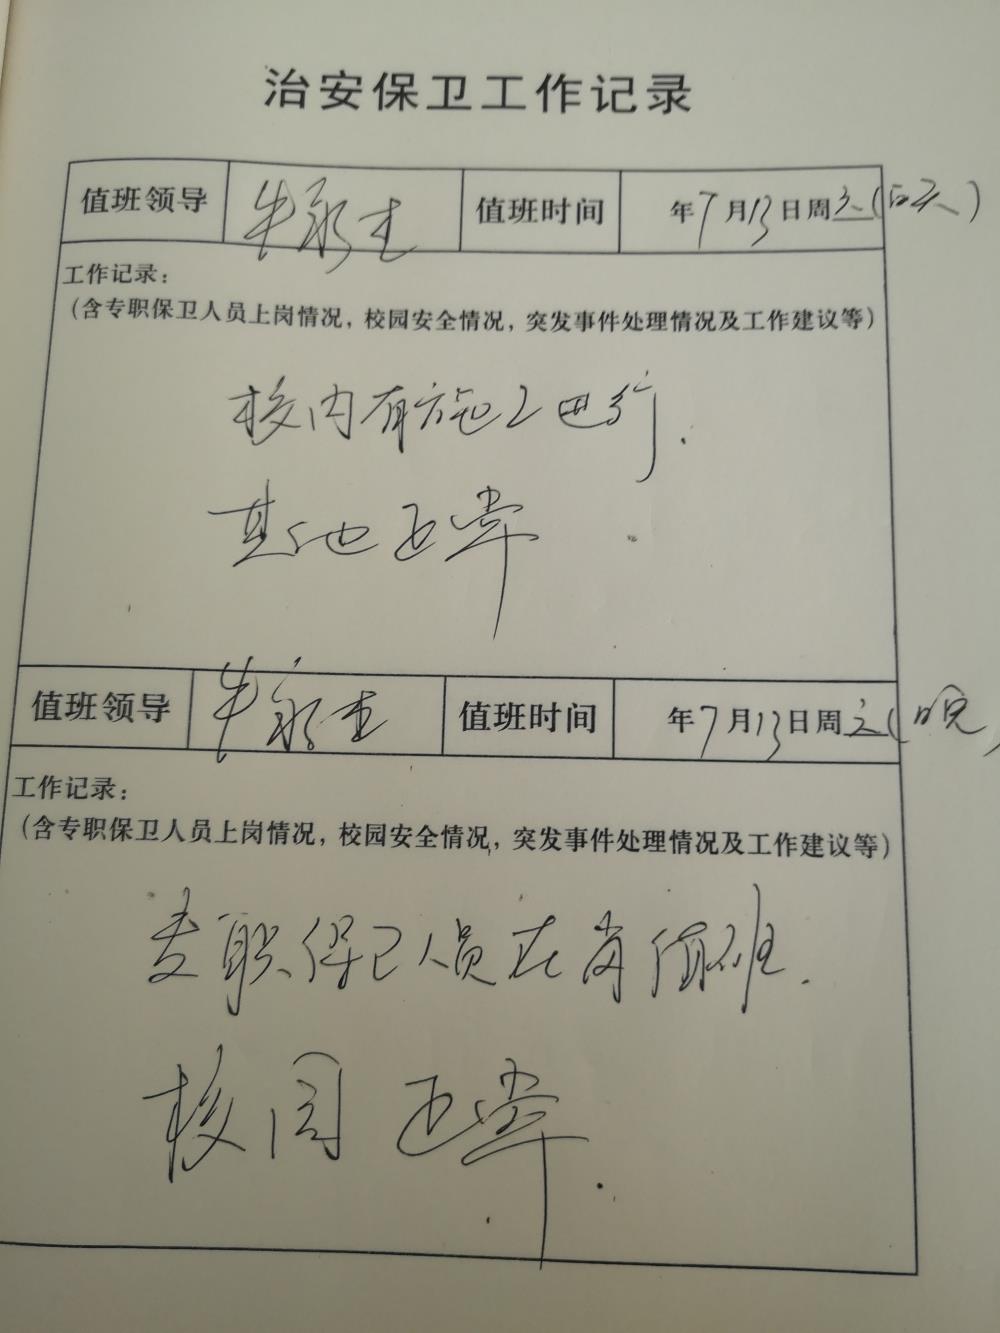 治安保卫工作记录
值班领导 牛永生 值班时间 年7月13日周六(白天)
工作记录：
（含专职保卫人员上岗情况，校园安全情况，突发事件处理情况及工作建议等）
校内有施工进行.
其他正常
值班领导 牛永生 值班时间 年7月13日周六(晚)
工作记录：
（含专职保卫人员上岗情况，校园安全情况，突发事件处理情况及工作建议等）
专职保卫人员在岗值班.
校园正常.